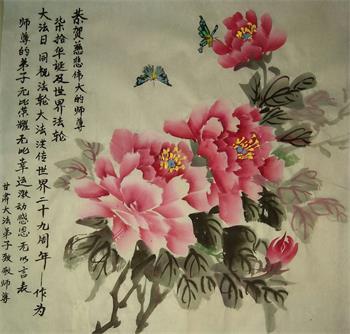 恭贺慈悲伟大的师尊
柒拾华诞及世界法轮
大法日同祝法轮大法洪传世界二十九周年——作为
师尊的弟子无比荣耀无比幸运激动感恩无以言表
甘肃大法弟子敬敬师尊